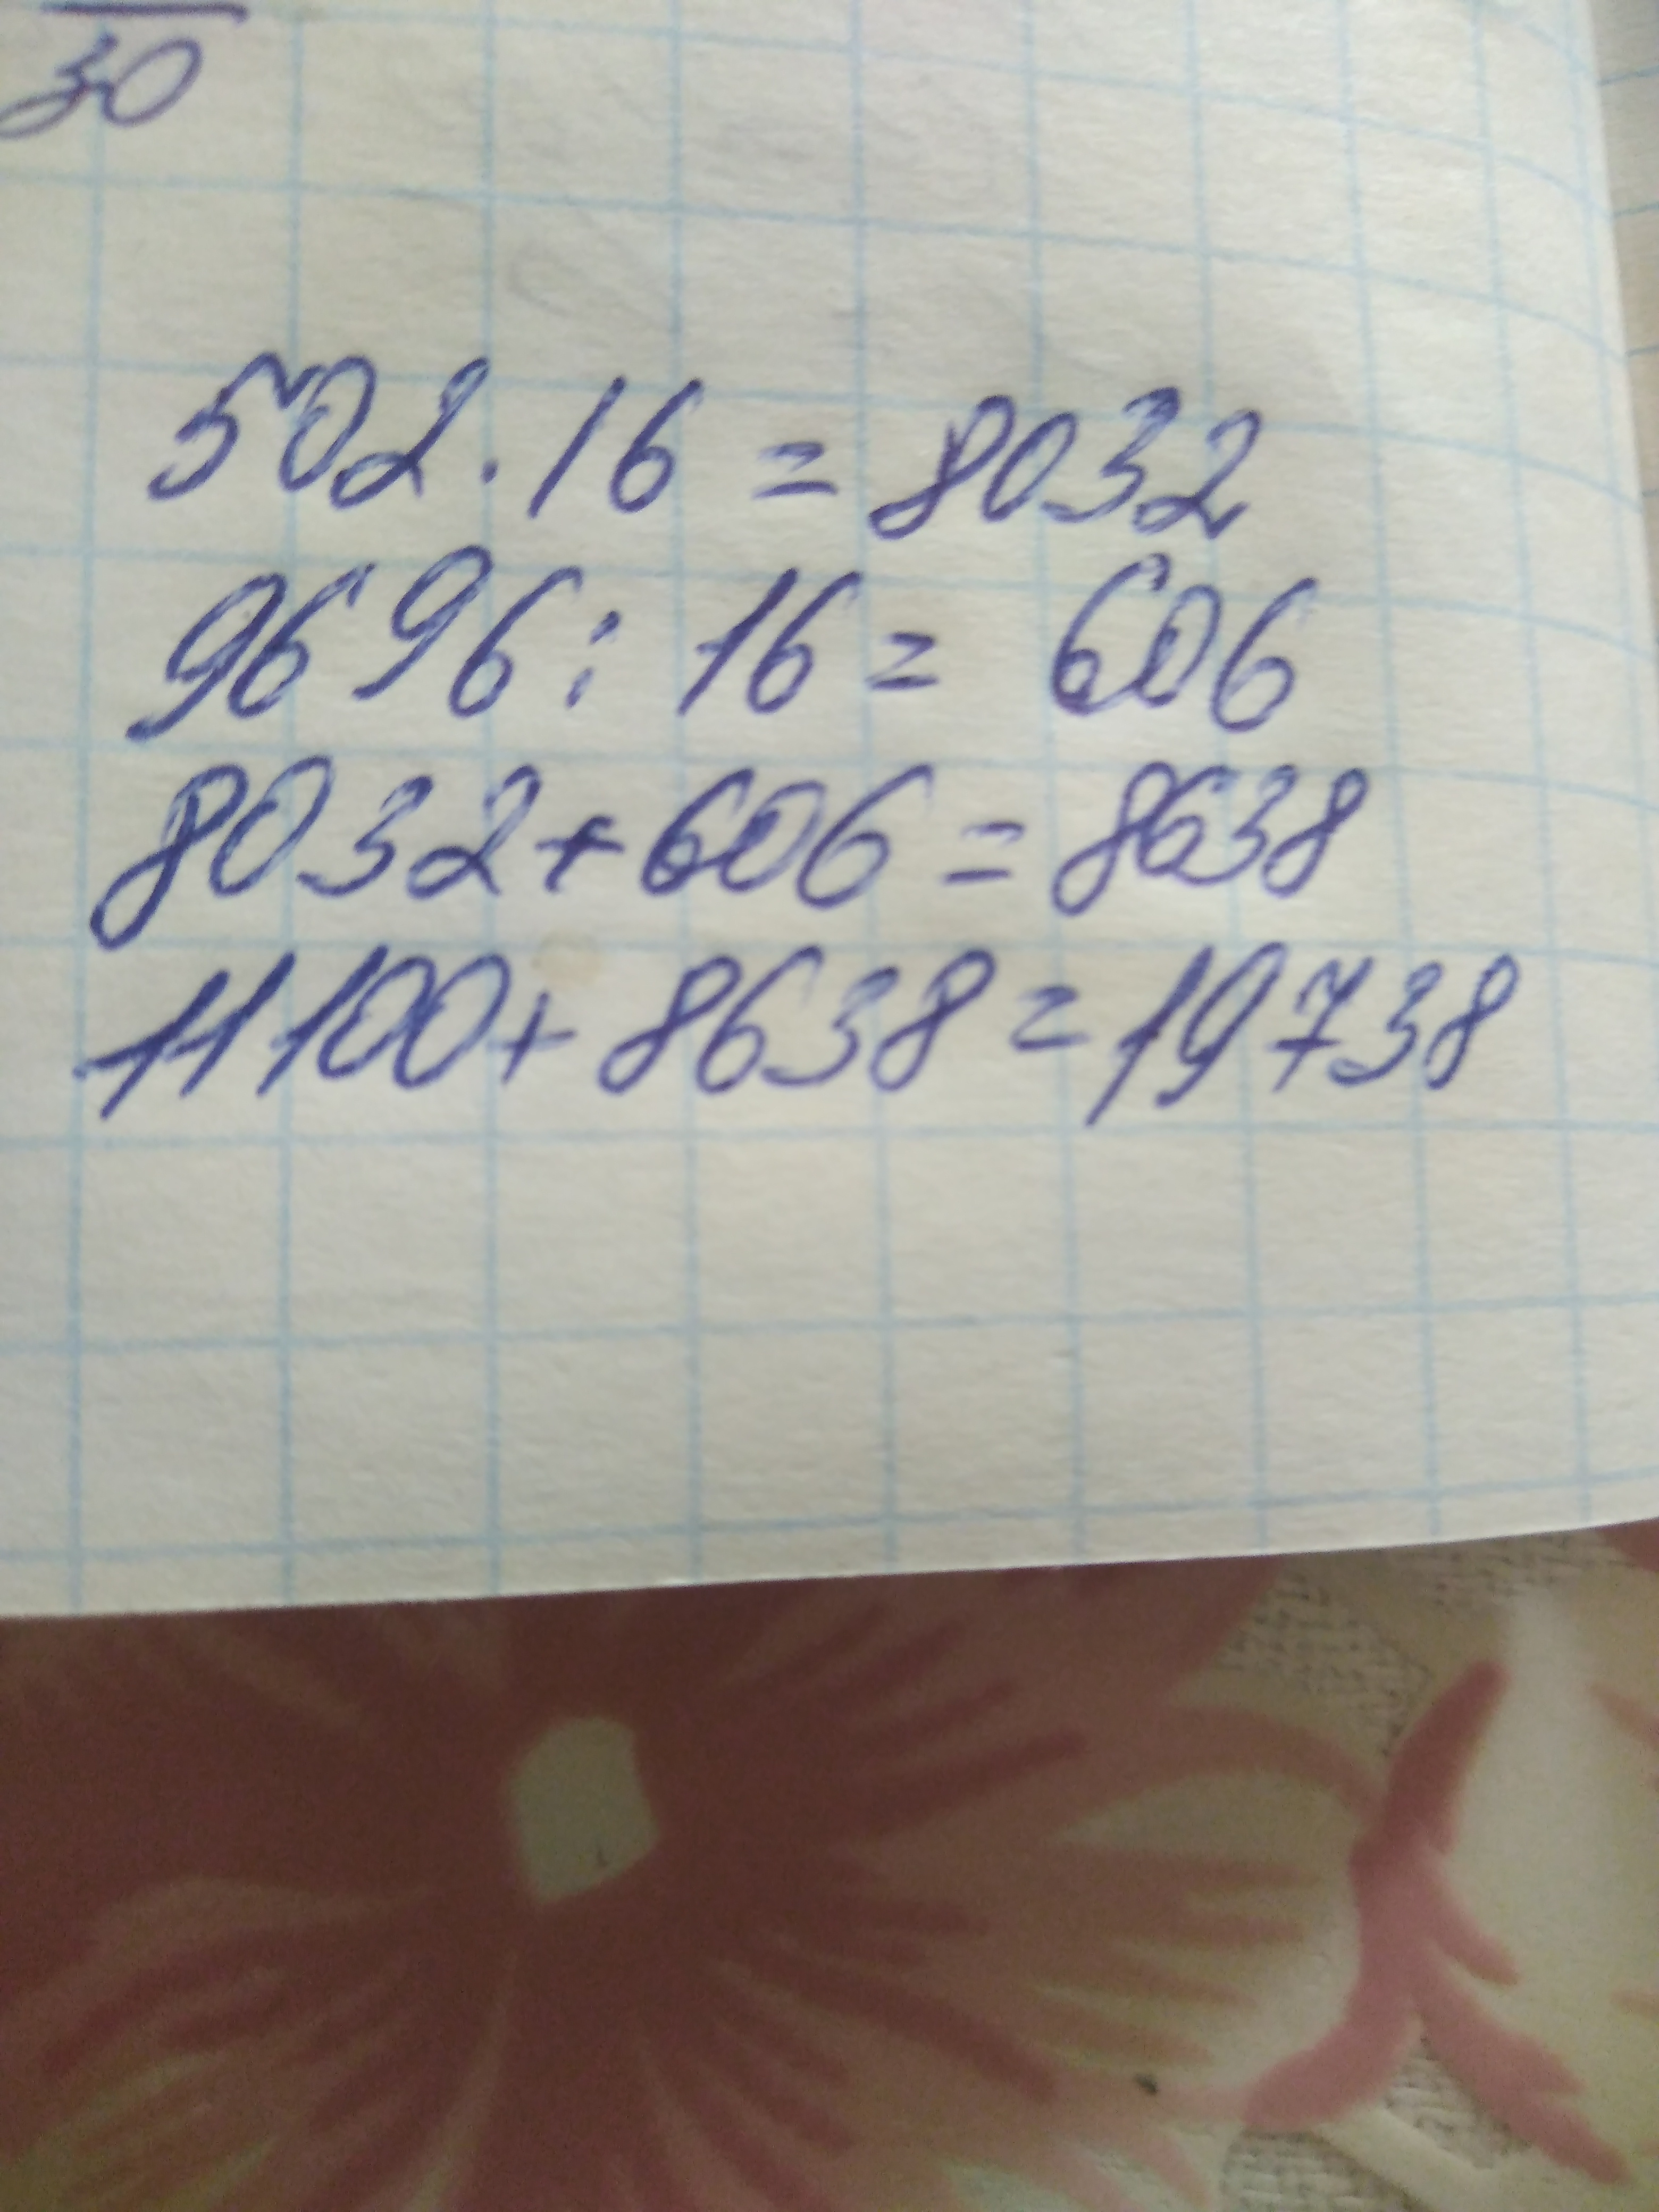 30
502 · 16 = 8032
9696 : 16 = 606
8032 + 606 = 8638
11100 + 8638 = 19738